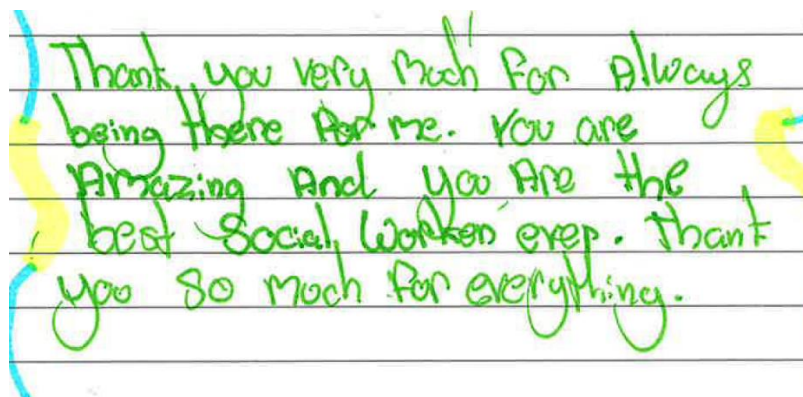 Thank you very much for Always
being there for me. You are
Amazing And you Are the
best Social Worker ever. Thank
you so much for everything.